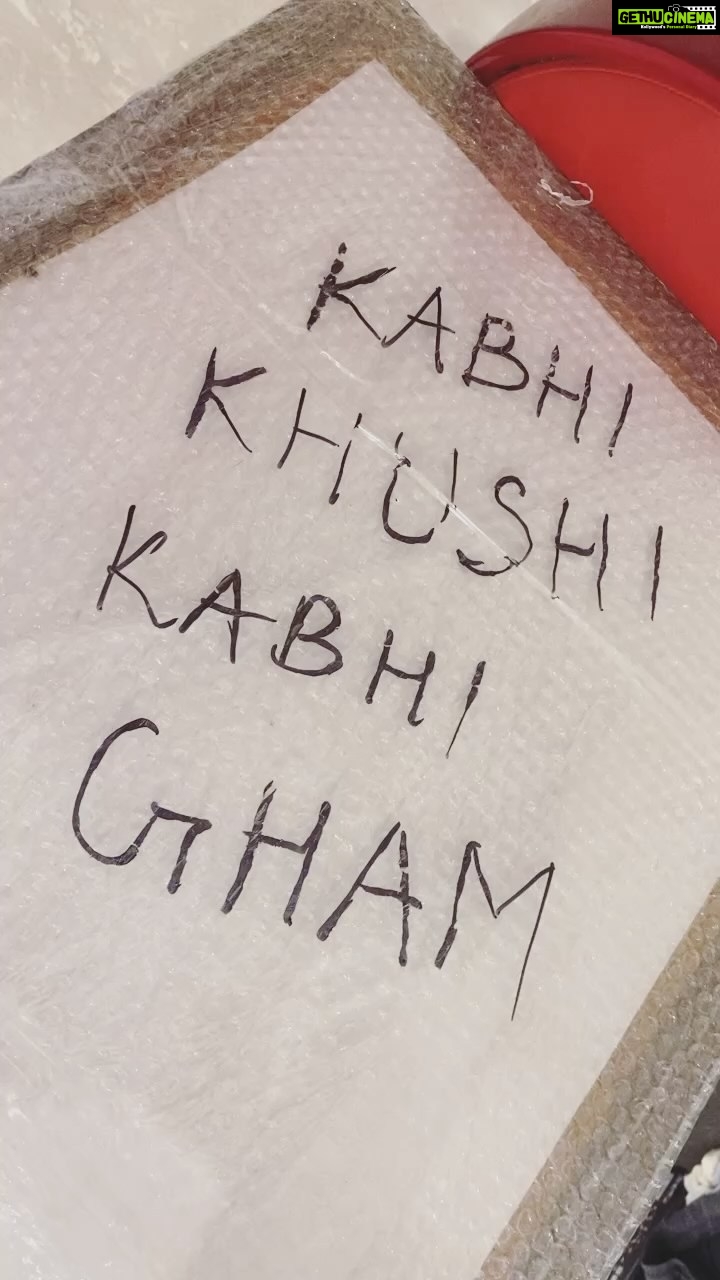 GETHU CINEMA
Kollywood's Personal Diary
KABHI
KHUSHI
KABHI
GHAM